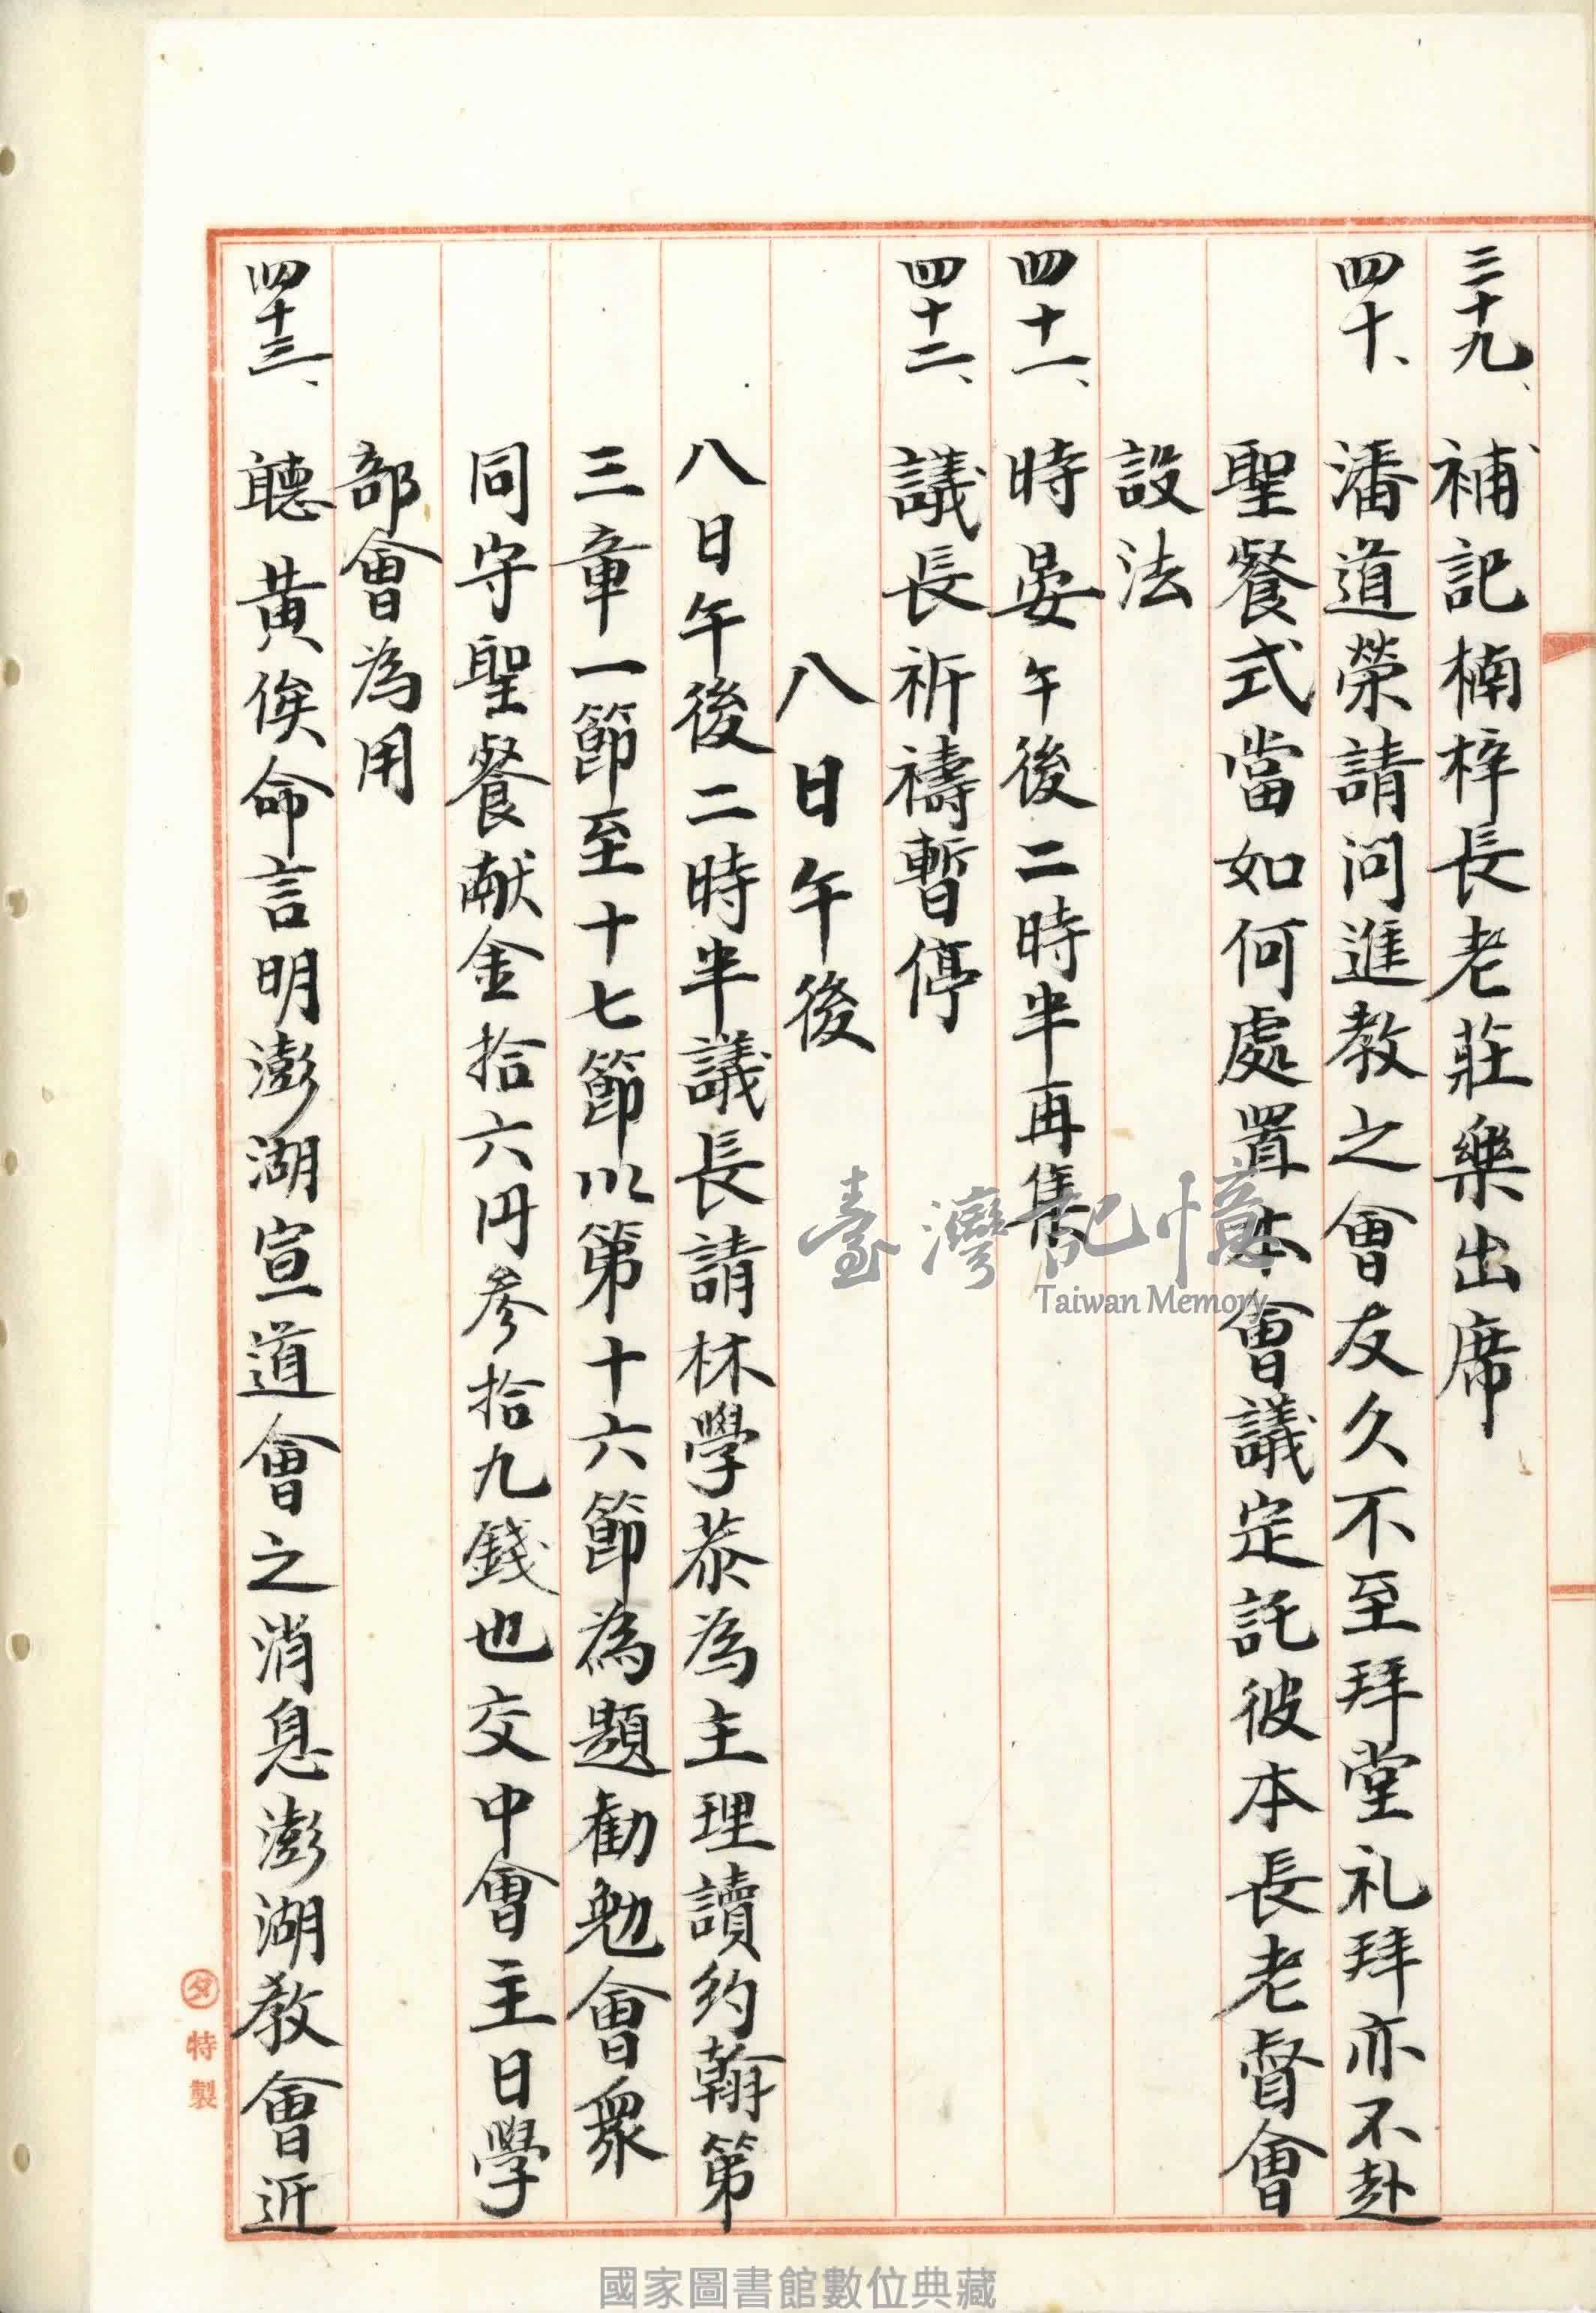 三十九、補記楠梓長老莊樂出席
四十、潘道榮請问進教之會友久不至拜堂礼拜亦不赴
聖餐式當如何處置本會議定託彼本長老督會
設法
四十一、時晏午後二時半再集
四十二、議長祈禱暫停
八日午後
八日午後二時半議長請林學恭為主理讀約翰第
三章一節至十七節以第十六節為題勸勉會衆
同守聖餐献金拾六円参拾九錢也交中會主日學
部會為用
四十三、聽黃俟命言明澎湖宣道會之消息澎湖教會近
臺灣記憶
Taiwan Memory
タ特製
國家圖書館數位典藏